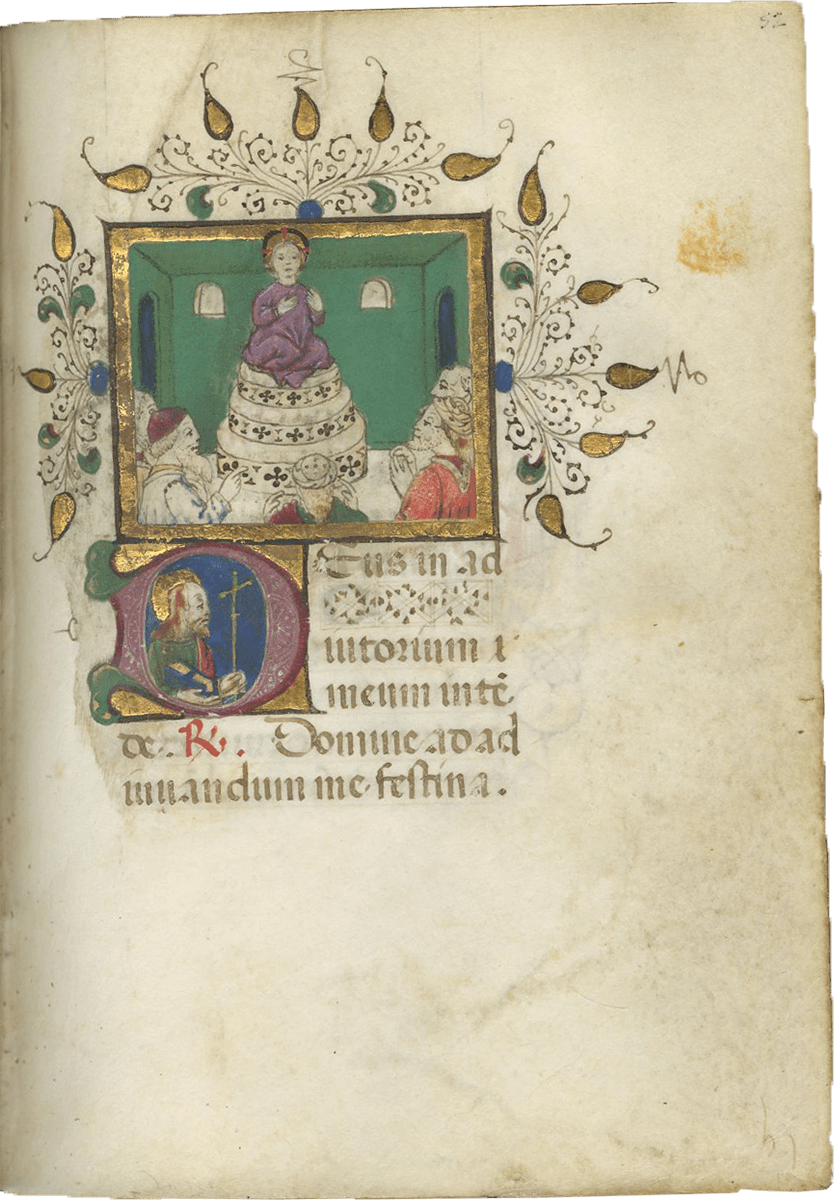 52
DEus in ad
iutorium ı
meum intē
de. R. Domine ad ad
iuuandum me festina.